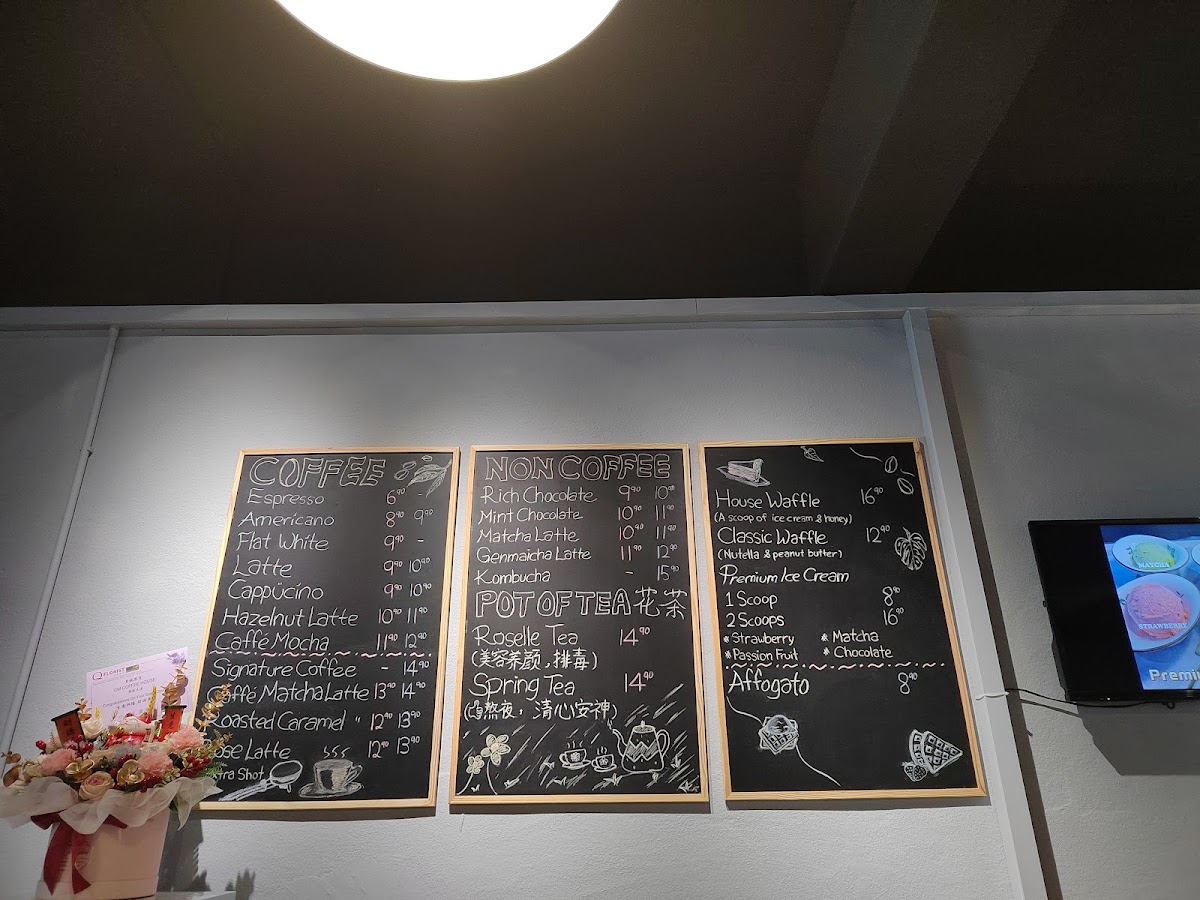 COFFEE
Espresso 6⁹⁰ -
Americano 8⁹⁰ 9⁹⁰
Flat White 9⁹⁰ -
Latte 9⁹⁰ 10⁹⁰
Cappucino 9⁹⁰ 10⁹⁰
Hazelnut Latte 10⁹⁰ 11⁹⁰
Caffé Mocha 11⁹⁰ 12⁹⁰
Signature Coffee - 14⁹⁰
Caffé Matcha Latte 13⁹⁰ 14⁹⁰
Roasted Caramel " 12⁹⁰ 13⁹⁰
ose Latte 12⁹⁰ 13⁹⁰
tra Shot
NON COFFEE
Rich Chocolate 9⁹⁰ 10⁹⁰
Mint Chocolate 10⁹⁰ 11⁹⁰
Matcha Latte 10⁹⁰ 11⁹⁰
Genmaicha Latte 11⁹⁰ 12⁹⁰
Kombucha - 15⁹⁰
POT OF TEA 花茶
Roselle Tea 14⁹⁰
(美容养颜，排毒)
Spring Tea 14⁹⁰
熬夜，清心安神)
House Waffle 16⁹⁰
(A scoop of ice cream & honey)
Classic Waffle 12⁹⁰
(Nutella & peanut butter)
Premium Ice Cream
1 Scoop 8⁹⁰
2 Scoops 16⁹⁰
*Strawberry * Matcha
*Passion Fruit * Chocolate
Affogato 8⁹⁰
FLORIST
COFFEE HOUSE
MATCHA
STRAWBERRY
Premi